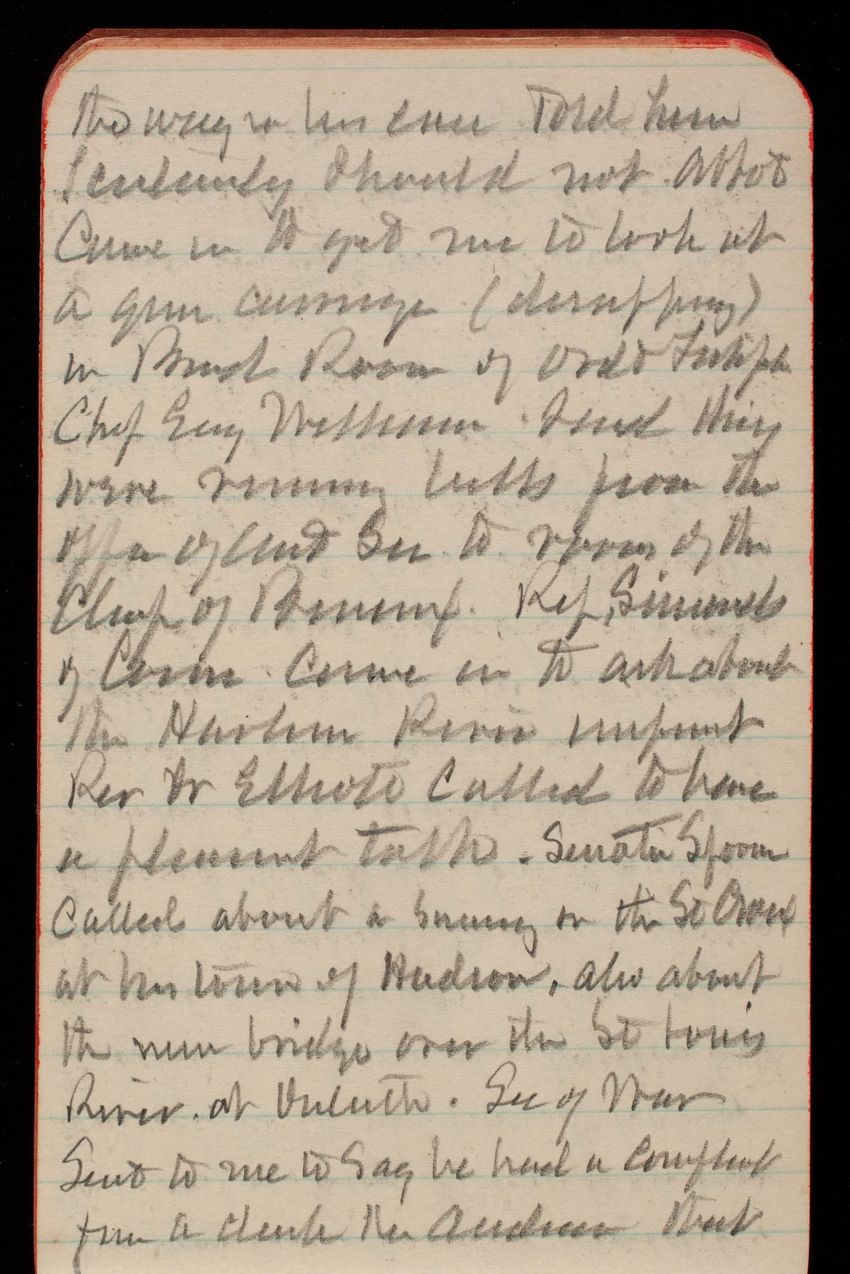 the way in his case Told him
I certainly should not. Abbot
Came in to get me to look at
a gun carriage (disappg)
in Board Room of Ord &
Chf Eng said they
were running bells from the
offic of Asst Sec to room of the
Chief of Bureaus. Rep, Simonds
of Conn Came in to ask about
the Harlem River impmt
Rev Dr Elliott Called to have
a pleasant talk. Senator Spoon
Called about a on the St Croix
at his town of Hudson, also about
the new bridge over the St Louis
River. at Duluth. Sec of War
Sent to me to say he had a complaint
from a clerk that